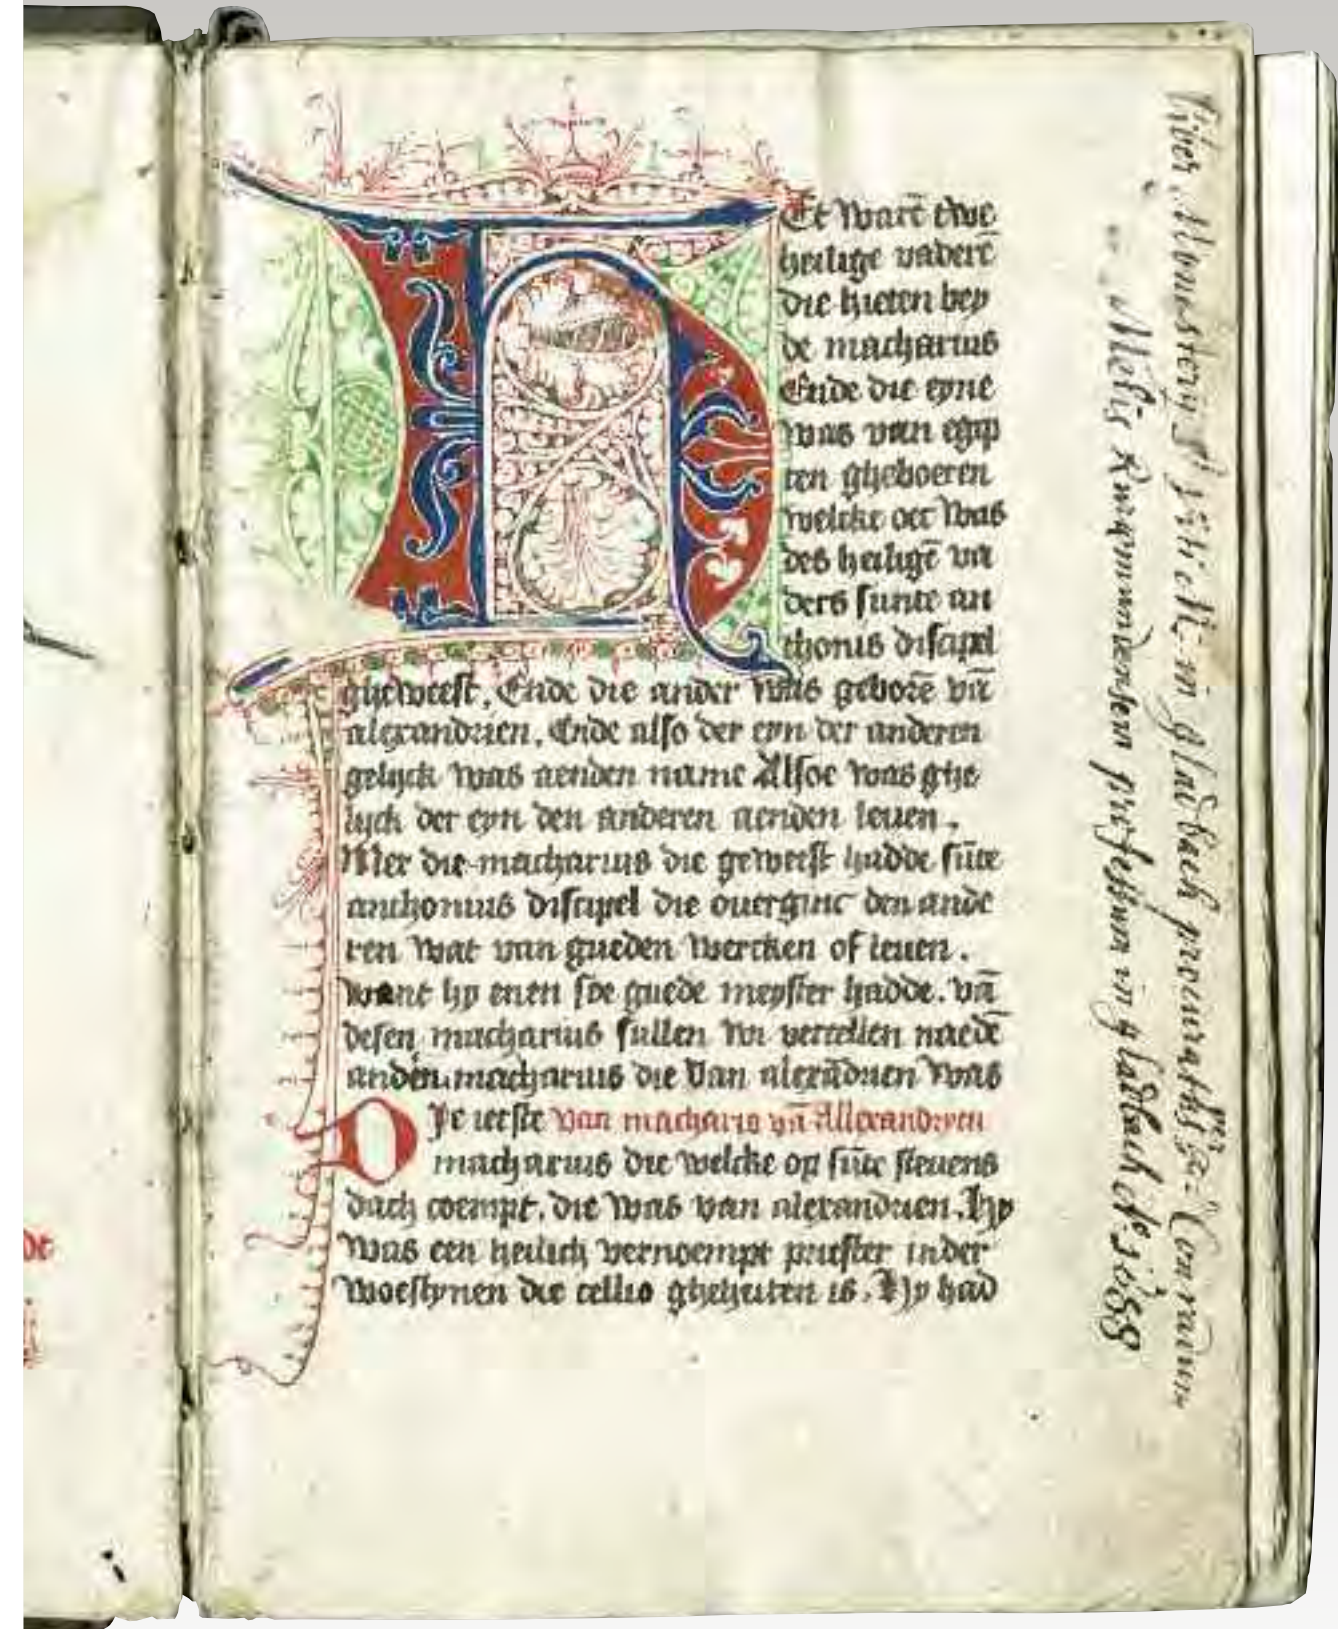 HEt warē twe
heilige vaderē
die hieten bey
de macharius
Ende die eyne
was van egip
ten gheboeren
welcke oec was
des heiligē va
ders sunte an
thonis discipel
gheweest. Ende die ander was geborē vā
alexandrien. Ende also der eyn der anderen
gelijck was aenden name Alsoe was ghe
lijck der eyn den anderen aenden leuen.
Mer die macharius die geweest hadde sūte
anthonius discipel die ouerginc den ande
ren wat van gueden wercken of leuen.
want hy enen soe guede meyster hadde. vā
desen macharius sullen wi vertellen naedē
anden macharius die van alexādrien was
DJe ierste van macharis vā Allexandryen
macharius die welcke op sūte steuens
dach coempt. die was van alexandrien. Hy
was een heilich vernoempt priester inder
woestynen die cellio ghehieten is. Hy had
Liber Monasterij S. Viti in gladbach procuratus per Conradum
Melis Ruremundensem professum in gladbach
de